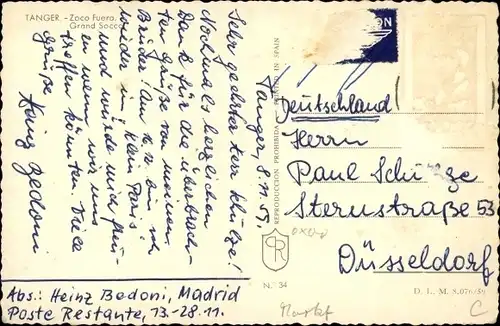 TANGER. - Zoco Fuera.
Grand Socco
Tanger, 8.11.59,
Sehr geehrter Herr Schütze!
Nochmals herzlichen
Dank für die überbrach-
ten Grüße von meinem
Bruder! Am 2. 12. bin ich
wieder in Klein Paris
und würde mich freu
en wenn wir uns
treffen könnten. Viele
Grüße
Heinz Bedoni
Abs.: Heinz Bedoni, Madrid
Poste Restante, 13.-28.11.
REPRODUCCION PROHIBIDA
IN SPAIN
N.º 34
Deutschland
Herrn
Paul Schütze
Sternstraße 53
Düsseldorf
D. L. M. 8.076/59
Markt
C